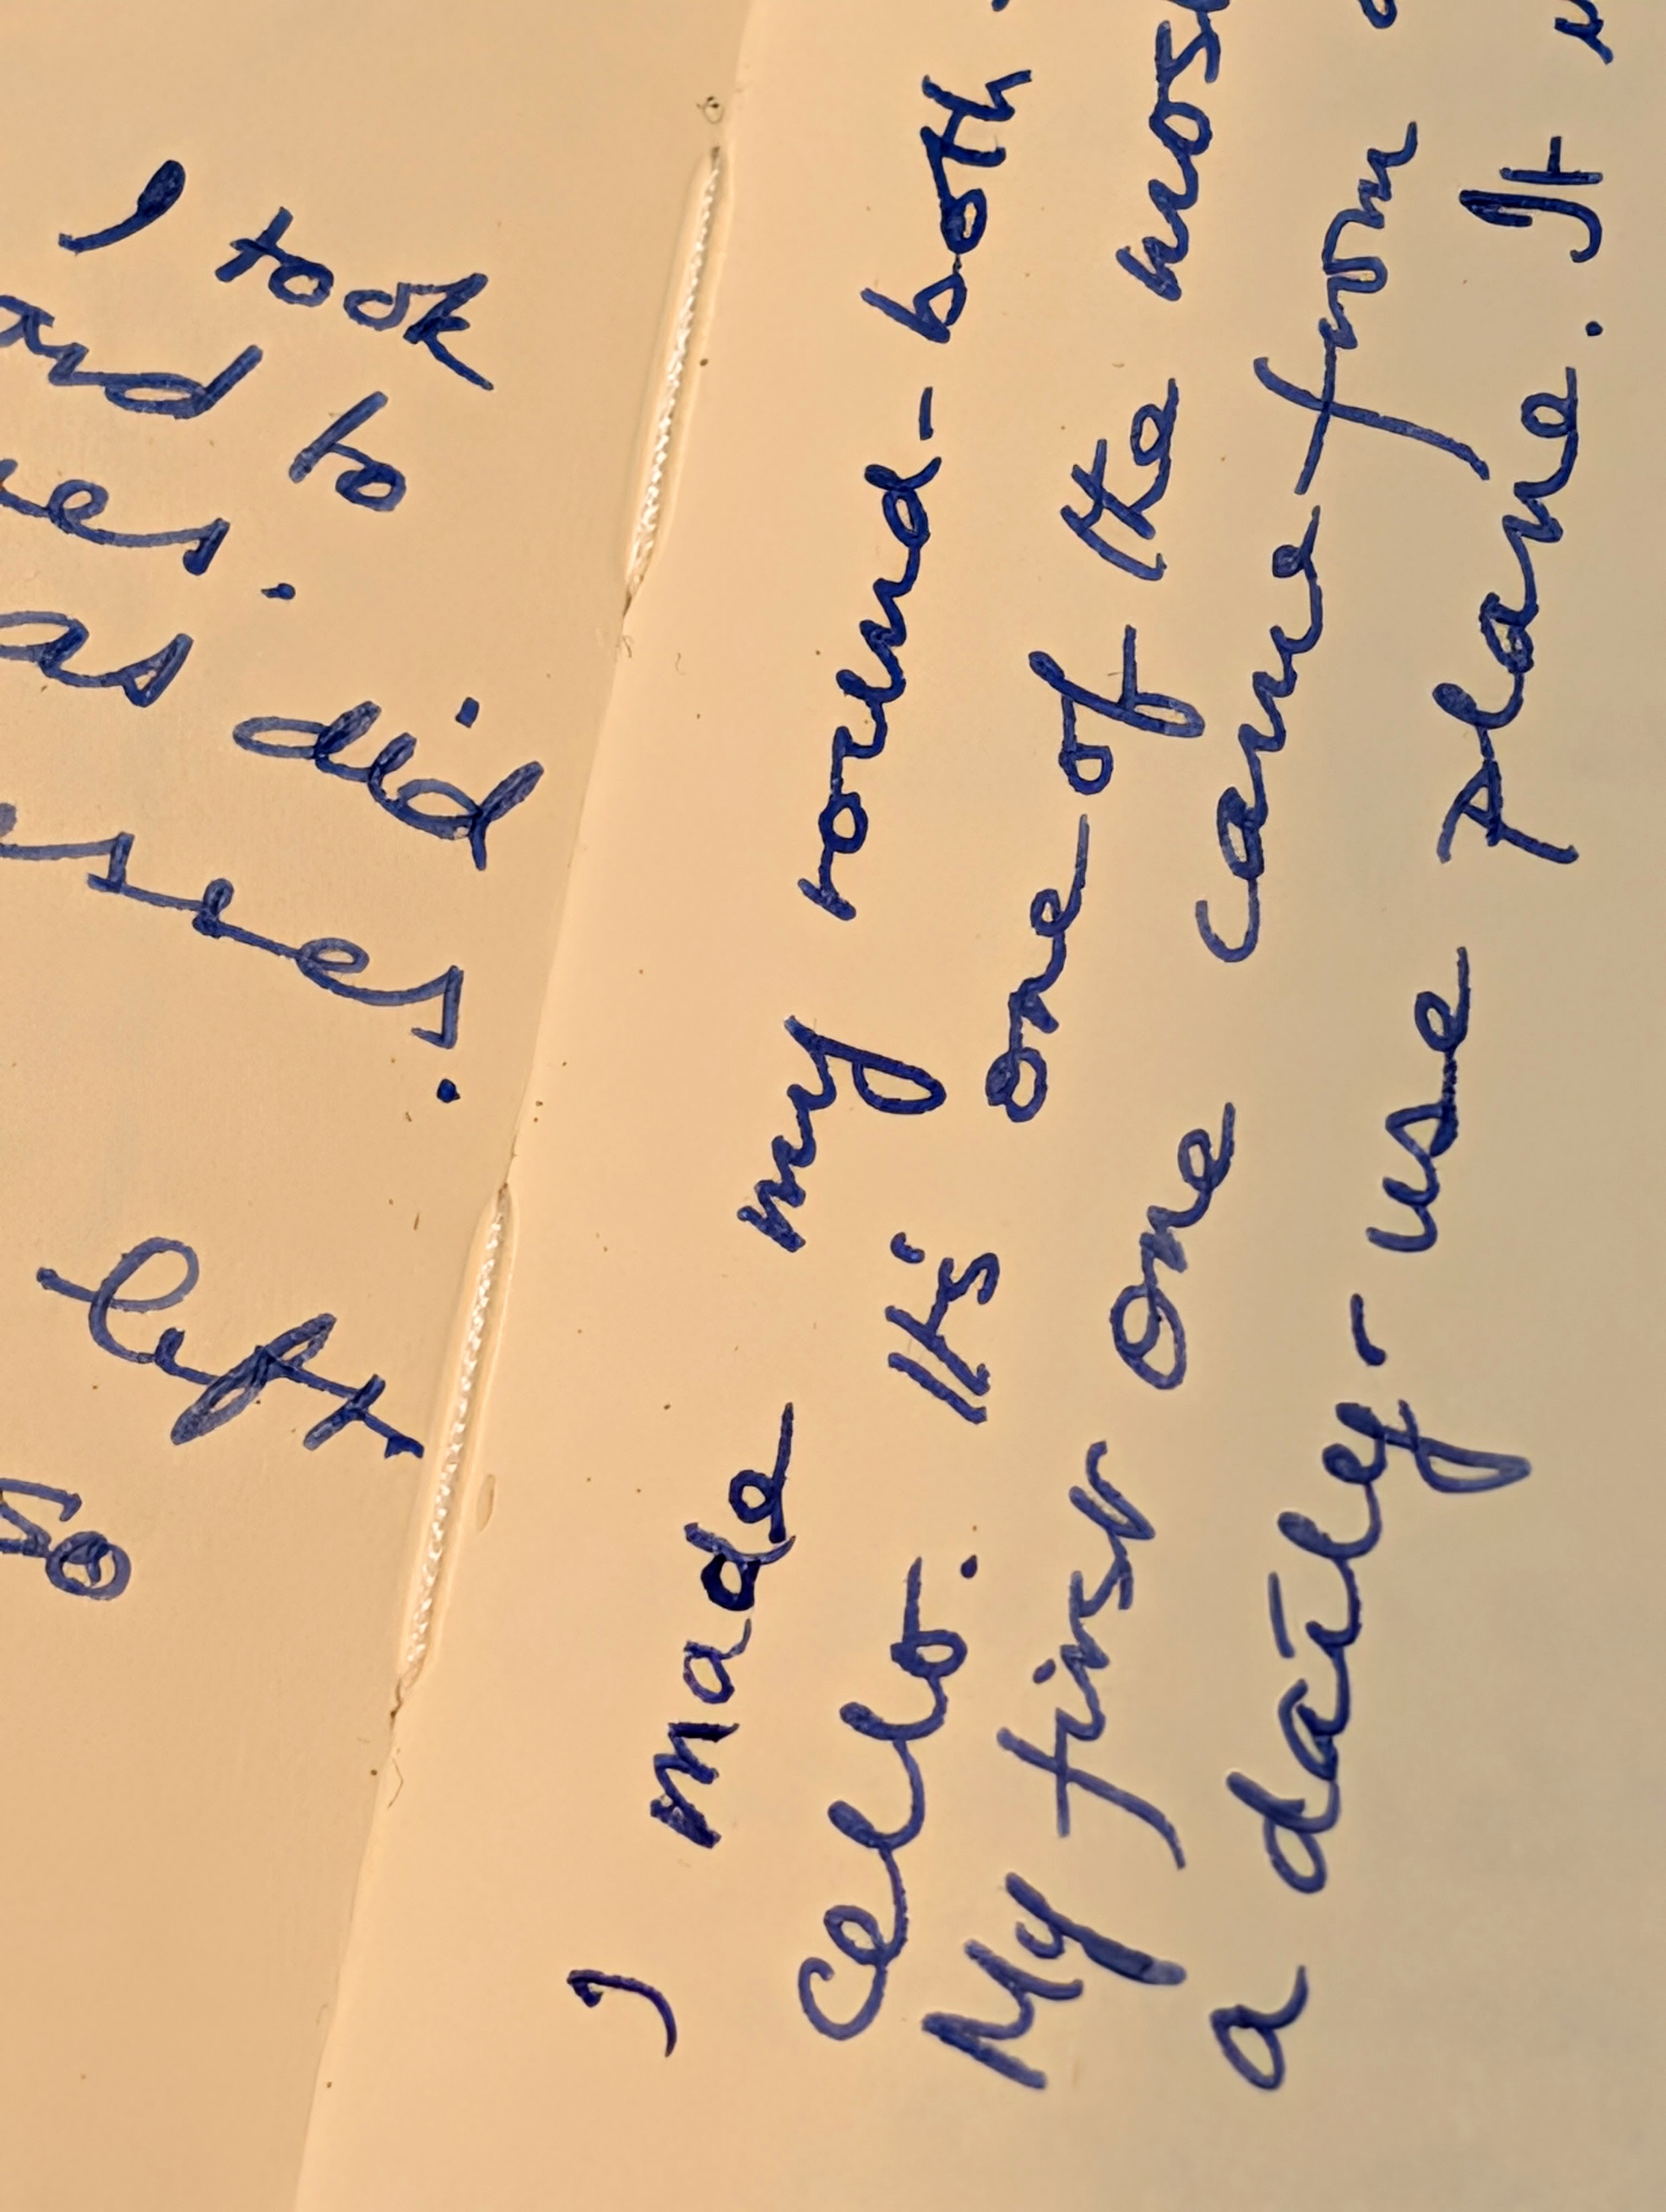 , took
and to
es.
as did
esses.
left
so
I made my round-both
cello. It's one of the mos
My first one came from
a daily-use plane. It